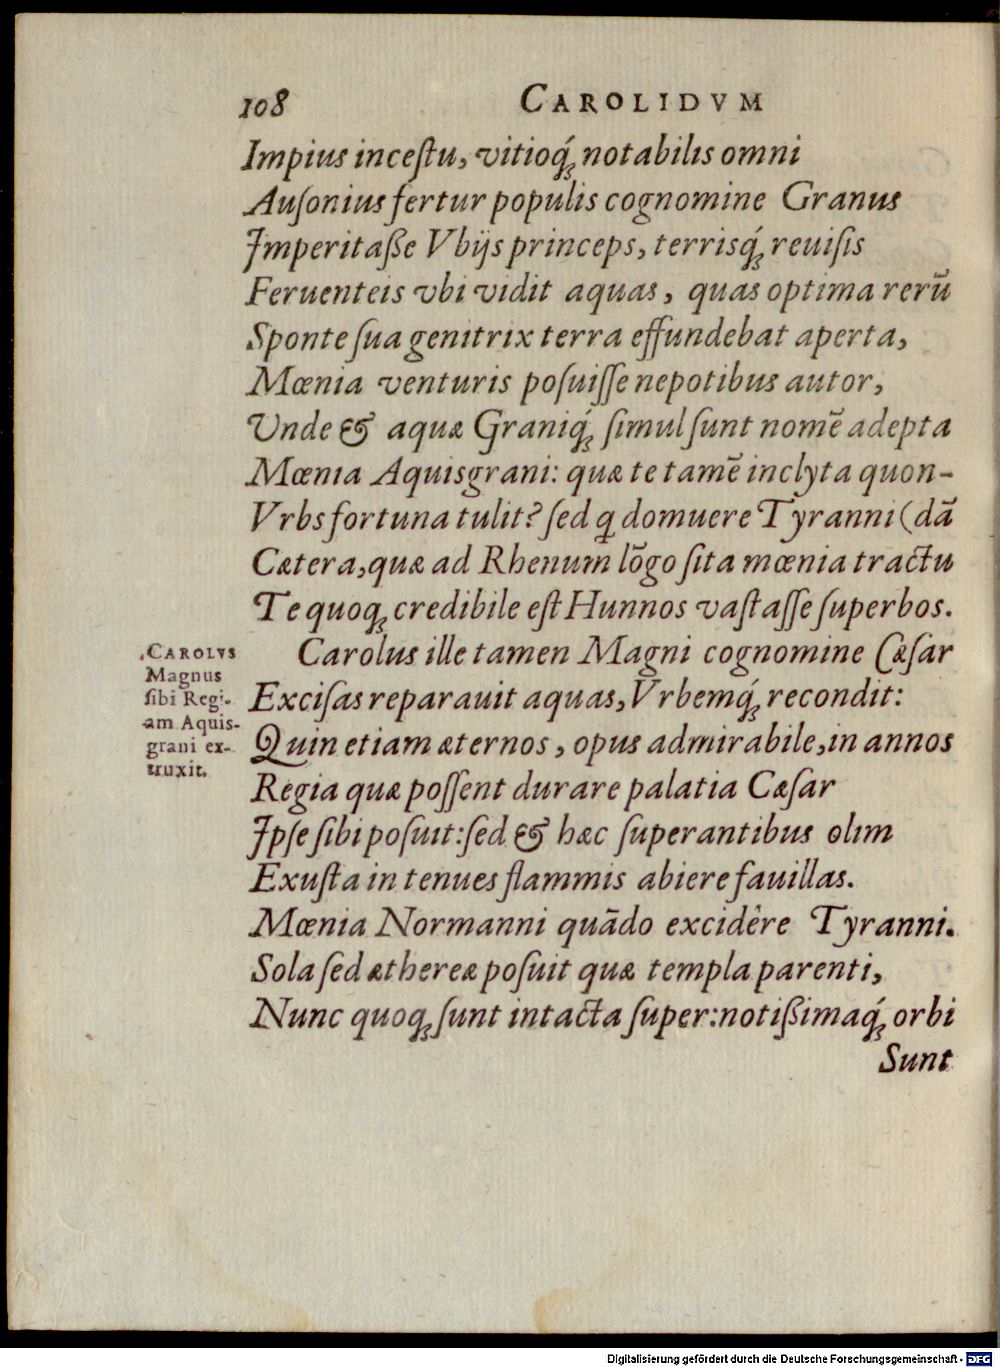 108 CAROLIDVM
Impius incestu, vitioq́ꝫ notabilis omni
Ausonius fertur populis cognomine Granus
Imperitaße Vbijs princeps, terrisq́ꝫ reuisis
Feruenteis vbi vidit aquas, quas optima rerū
Sponte sua genitrix terra effundebat aperta,
Mœnia venturis posuisse nepotibus autor,
Unde & aquæ Graniq́ꝫ simul sunt nomē adepta
Mœnia Aquisgrani: quæ te tamē inclyta quon-
Vrbs fortuna tulit? sed q domuere Tyranni (dā
Cætera, quæ ad Rhenum lōgo sita mœnia tractu
Te quoqꝫ credibile est Hunnos vastasse superbos.
Carolus ille tamen Magni cognomine Cæsar
Excisas reparauit aquas, Vrbemq́ꝫ recondit:
Quin etiam æternos, opus admirabile, in annos
Regia quæ possent durare palatia Cæsar
Ipse sibi posuit: sed & hæc superantibus olim
Exusta in tenues flammis abiere fauillas.
Mœnia Normanni quādo excidêre Tyranni.
Sola sed æthereæ posuit quæ templa parenti,
Nunc quoqꝫ sunt intacta super: notißimaq́ꝫ orbi
Sunt
CAROLVS
Magnus
sibi Regi-
am Aquis-
grani ex-
truxit.
Digitalisierung gefördert durch die Deutsche Forschungsgemeinschaft - DFG